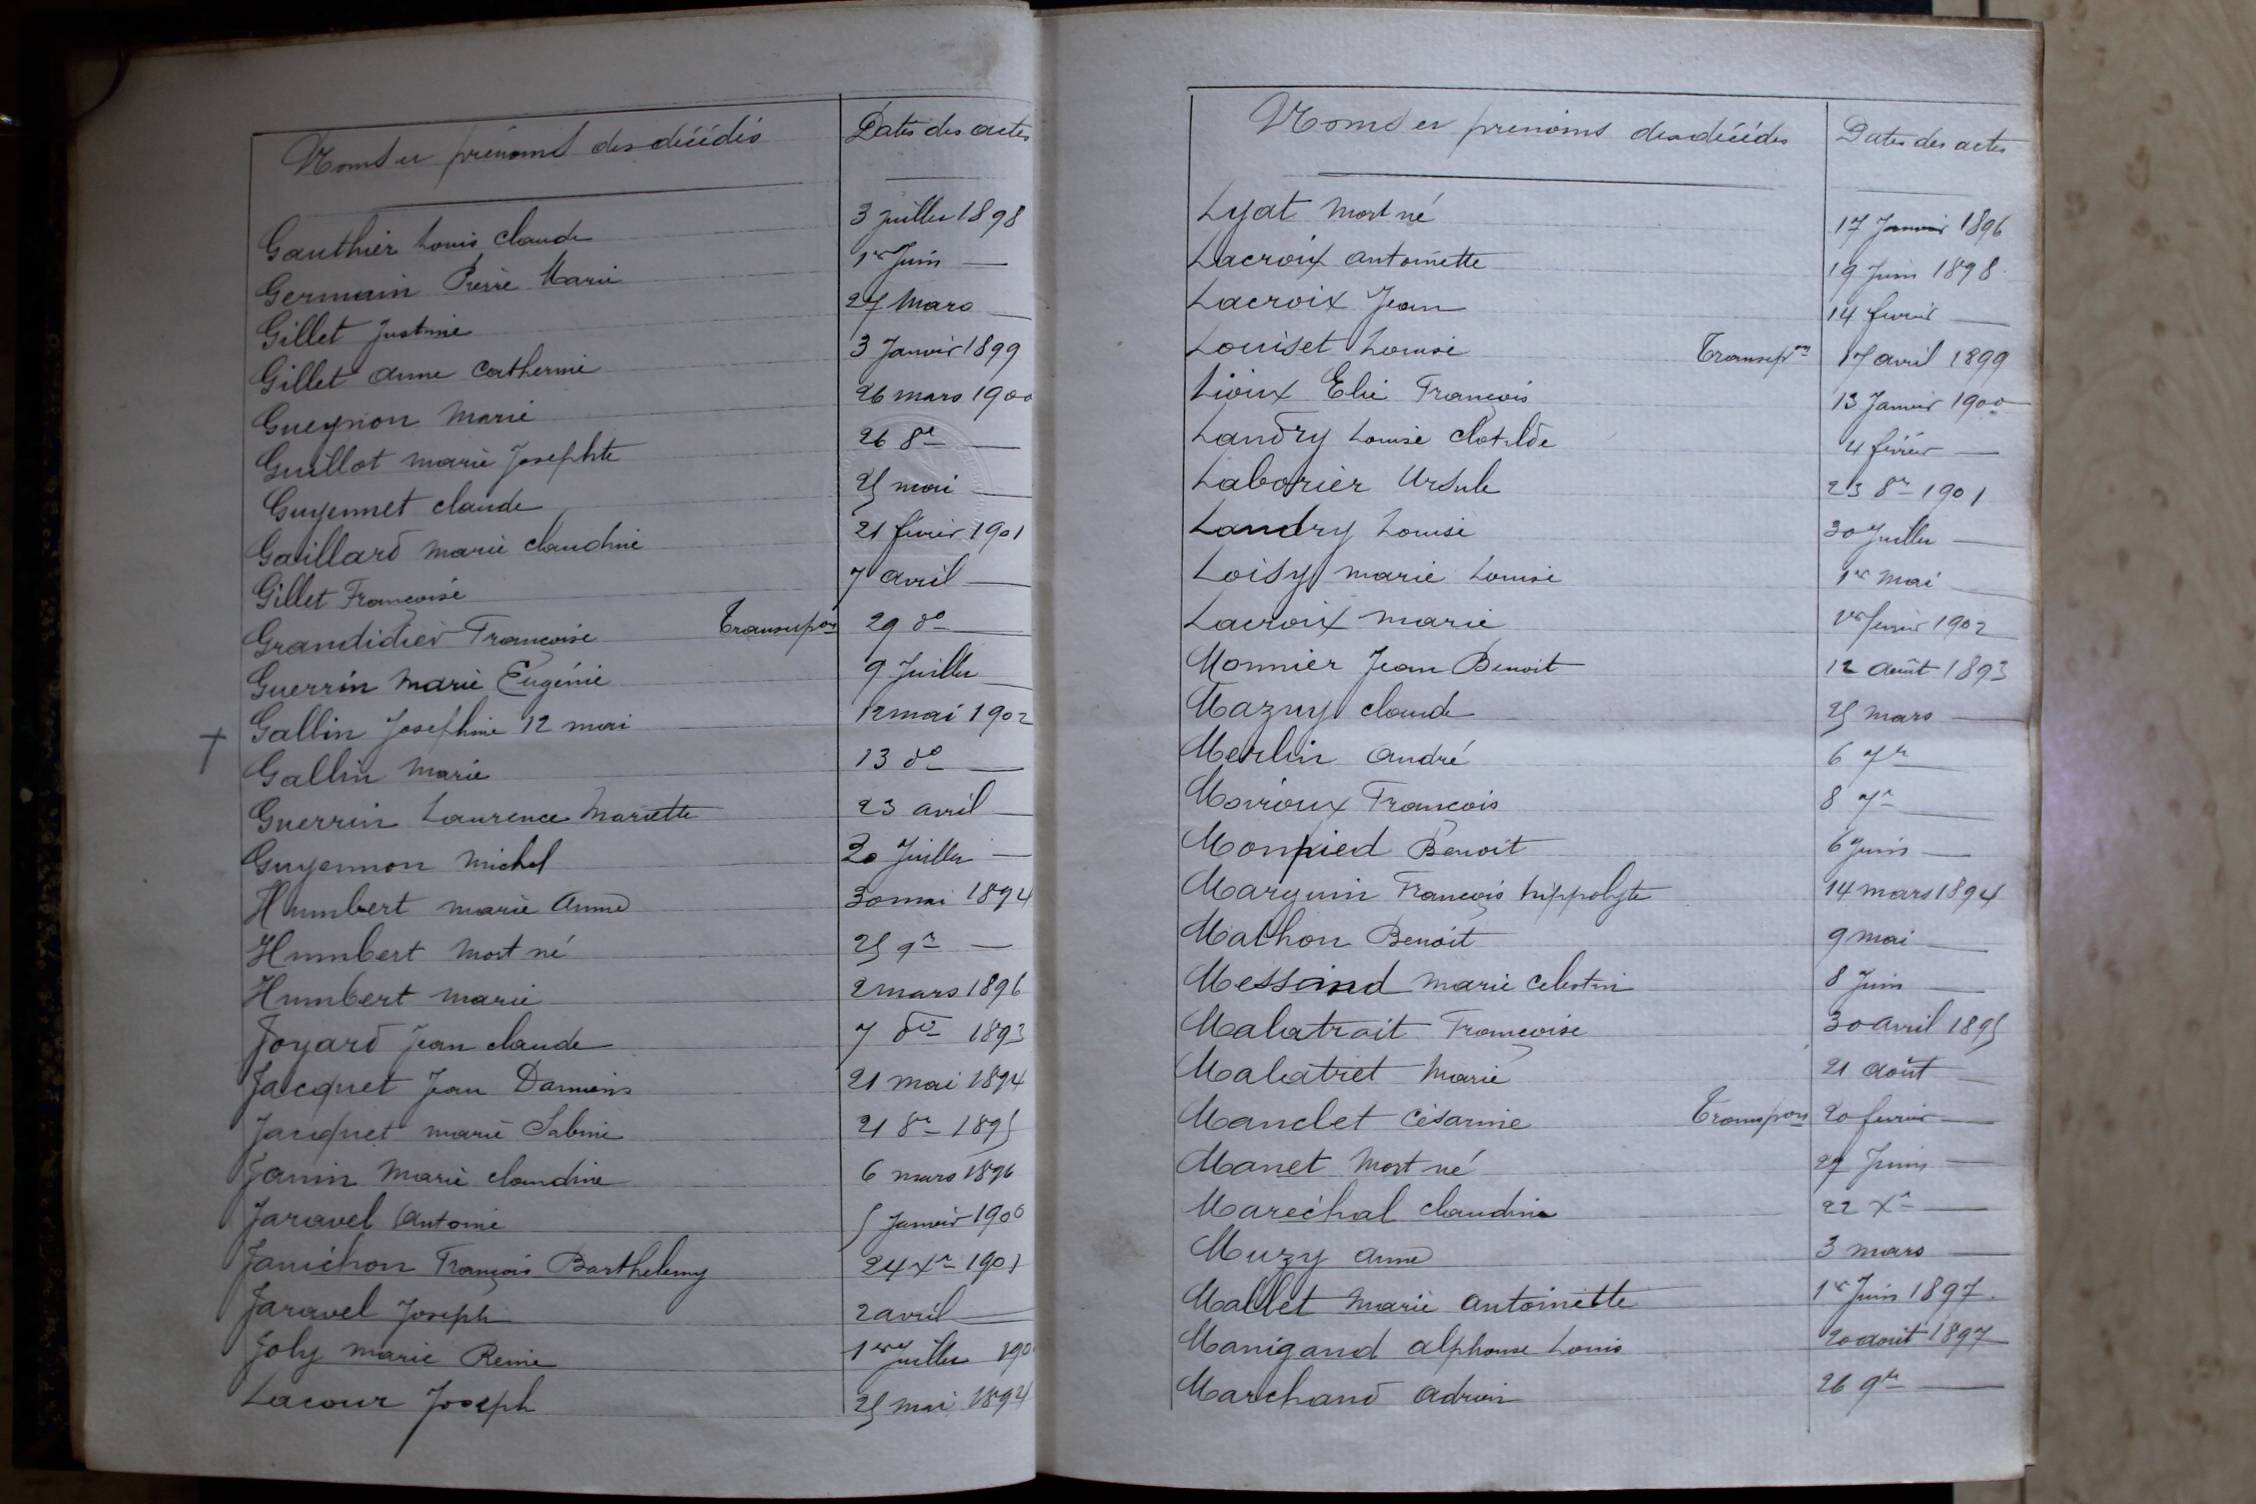 Noms et prénoms des décédés Dates des actes
Gauthier Louis Claude 3 juillet 1898
Germain Pierre Marie 1er Juin —
Gillet Justine 27 Mars —
Gillet Anne Catherine 3 Janvier 1899
Gueynon Marie 26 mars 1900
Guillot Marie Josephte 26 8re —
Guyennet Claude 25 mai —
Gaillard Marie Claudine 21 février 1901
Gillet Françoise 7 avril —
Grandidier Françoise Transcripon 29 do —
Guerrin Marie Eugénie 9 Juillet —
Gallin Joséphine 12 mai 12 mai 1902
+ Gallin Marie 13 do —
Guerrin Laurence Mariette 23 avril —
Guyennon Michel 30 Juillet —
Humbert Marie Anne 30 mai 1894
Humbert Mort né 25 9re —
Humbert Marie 2 mars 1896
Joyard Jean Claude 7 1893
Jacquet Jean Damiens 21 mai 1894
Jacquet Marie Sabine 21 8re 1895
Janin Marie Claudine 6 mars 1896
Jaravel Antoine 5 Janvier 1900
Janichon François Barthelemy 24 Xre 1901
Jaravel Joseph 2 avril —
Joly Marie Reine 1er Juillet 190
Lacour Joseph 25 mai 1894
Noms et prénoms des décédés Dates des actes
Lyat Mort né 17 Janvier 1896
Lacroix Antoinette 19 Juin 1898
Lacroix Jean 14 février —
Louiset Louise Transcripon 17 avril 1899
Lioux Elie François 13 Janvier 1900
Landry Louise Clotilde 4 février —
Laborier Ursule 23 8re 1901
Landry Louise 30 Juillet —
Loisy Marie Louise 1er Mai —
Lacroix Marie 1er février 1902
Monnier Jean Benoit 12 Août 1893
Mazuy Claude 25 mars —
Merlin André 6 7re —
Moiroux François 8 7re —
Monpied Benoit 6 Juin —
Marguin François hippolyte 14 mars 1894
Mathon Benoit 9 mai —
Messand Marie Celestin 8 Juin —
Malatrait Françoise 30 avril 1895
Malatret Marie 21 Août —
Manclet Césarine Transcripon 20 février —
Manet Mort né 27 Juin —
Maréchal Claudine 22 Xre —
Muzy Anne 3 mars —
Mallet Marie Antoinette 1er Juin 1897
Manigand Alphonse Louis 20 août 1897
Marchand Adrien 26 9re —